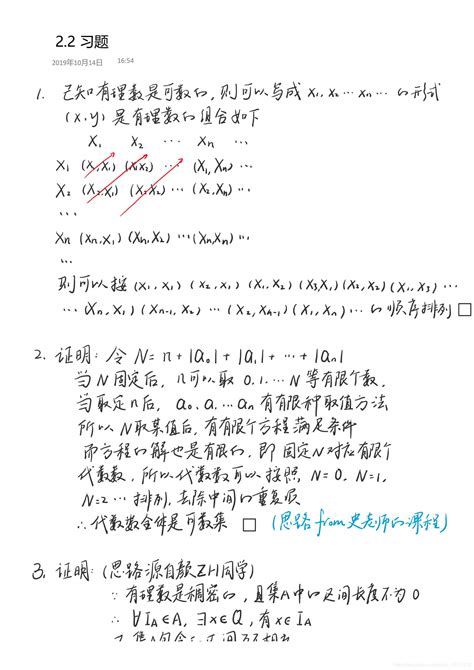 2.2 习题
2019年10月14日 16:54
1. 已知有理数是可数的,则可以写成 x₁, x₂ ⋯ xₙ ⋯ 的形式
(x,y) 是有理数的组合如下
x₁ x₂ ⋯ xₙ ⋯
x₁ (x₁,x₁) (x₁,x₂) ⋯ (x₁,xₙ) ⋯
x₂ (x₂,x₁) (x₂,x₂) ⋯ (x₂,xₙ) ⋯
⋯
xₙ (xₙ,x₁) (xₙ,x₂) ⋯ (xₙ,xₙ) ⋯
⋯
则可以按 (x₁,x₁) (x₂,x₁) (x₁,x₂) (x₃,x₁) (x₂,x₂) (x₁,x₃) ⋯
⋯ (xₙ,x₁) (xₙ₋₁,x₂) ⋯ (x₂,xₙ₋₁) (x₁,xₙ) ⋯ 的顺序排列 □
2. 证明: 令 N = n + |a₀| + |a₁| + ⋯ + |aₙ|
当 N 固定后, n可以取 0. 1. ⋯ N 等有限个数,
当取定n后, a₀. a₁ ⋯ aₙ 有有限种取值方法
所以 N取某值后, 有有限个方程满足条件
而方程的解也是有限的, 即 固定N对应有限个
代数数, 所以代数数可以按照, N=0. N=1.
N=2 ⋯ 排列, 去除中间的重复项
∴ 代数数全体是可数集 □ (思路from史老师的课程)
3. 证明: (思路源自数ZH同学)
∵ 有理数是稠密的, 且集A中的区间长度不为0
∴ ∀I_A∈A, ∃x∈Q, 有x∈I_A